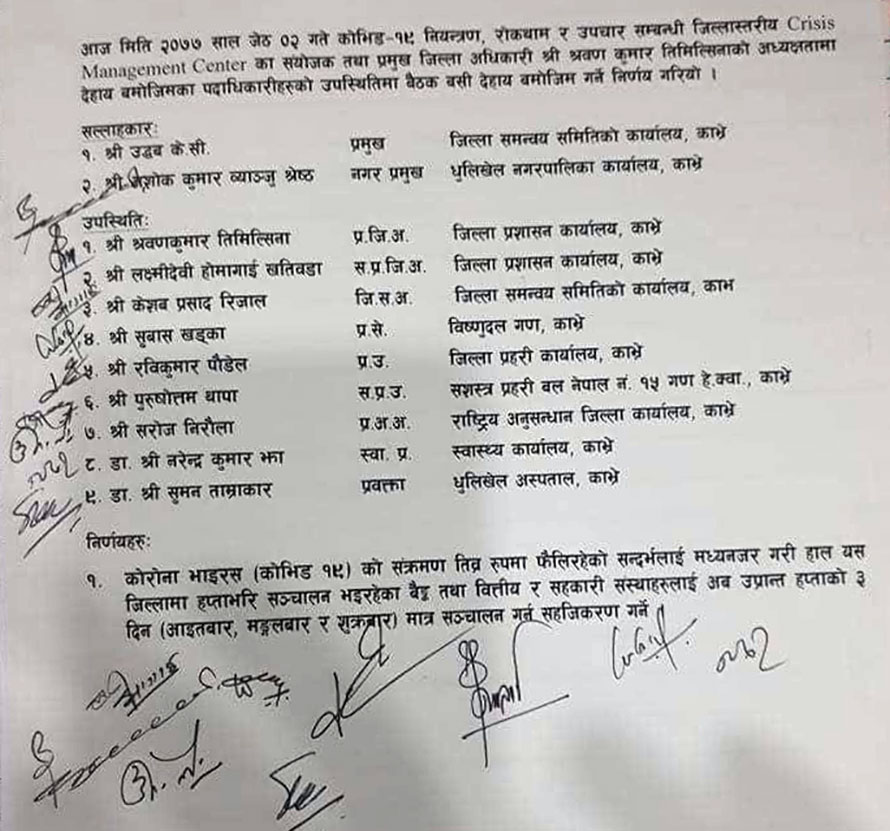 आज मिति २०७७ साल जेठ ०२ गते कोभिड-१९ नियन्त्रण, रोकथाम र उपचार सम्बन्धी जिल्लास्तरीय Crisis
Management Center का संयोजक तथा प्रमुख जिल्ला अधिकारी श्री श्रवण कुमार तिमिल्सिनाको अध्यक्षतामा
देहाय बमोजिमका पदाधिकारीहरुको उपस्थितिमा बैठक बसी देहाय बमोजिम गर्ने निर्णय गरियो ।
सल्लाहकारः
१. श्री उद्धव के.सी. प्रमुख जिल्ला समन्वय समितिको कार्यालय, काभ्रे
२. श्री अशोक कुमार व्याञ्जु श्रेष्ठ नगर प्रमुख धुलिखेल नगरपालिका कार्यालय, काभ्रे
उपस्थितिः
१. श्री श्रवणकुमार तिमिल्सिना प्र.जि.अ. जिल्ला प्रशासन कार्यालय, काभ्रे
२. श्री लक्ष्मीदेवी होमागाई खतिवडा स.प्र.जि.अ. जिल्ला प्रशासन कार्यालय, काभ्रे
३. श्री केशब प्रसाद रिजाल जि.स.अ. जिल्ला समन्वय समितिको कार्यालय, काभ्रे
४. श्री सुबास खड्का प्र.से. विष्णुदल गण, काभ्रे
५. श्री रविकुमार पौडेल प्र.उ. जिल्ला प्रहरी कार्यालय, काभ्रे
६. श्री पुरुषोत्तम थापा स.प्र.उ. सशस्त्र प्रहरी बल नेपाल नं. १५ गण हे.क्वा., काभ्रे
७. श्री सरोज निरौला प्र.अ.अ. राष्ट्रिय अनुसन्धान जिल्ला कार्यालय, काभ्रे
८. डा. श्री नरेन्द्र कुमार झा स्वा. प्र. स्वास्थ्य कार्यालय, काभ्रे
९. डा. श्री सुमन ताम्राकार प्रवक्ता धुलिखेल अस्पताल, काभ्रे
निर्णयहरुः
१. कोरोना भाइरस (कोभिड १९) को संक्रमण तिव्र रुपमा फैलिरहेको सन्दर्भलाई मध्यनजर गरी हाल यस
जिल्लामा हप्ताभरि सञ्चालन भइरहेका बैङ्क तथा वित्तीय र सहकारी संस्थाहरुलाई अब उप्रान्त हप्ताको ३
दिन (आइतबार, मङ्गलबार र शुक्रबार) मात्र सञ्चालन गर्न सहजिकरण गर्ने ।